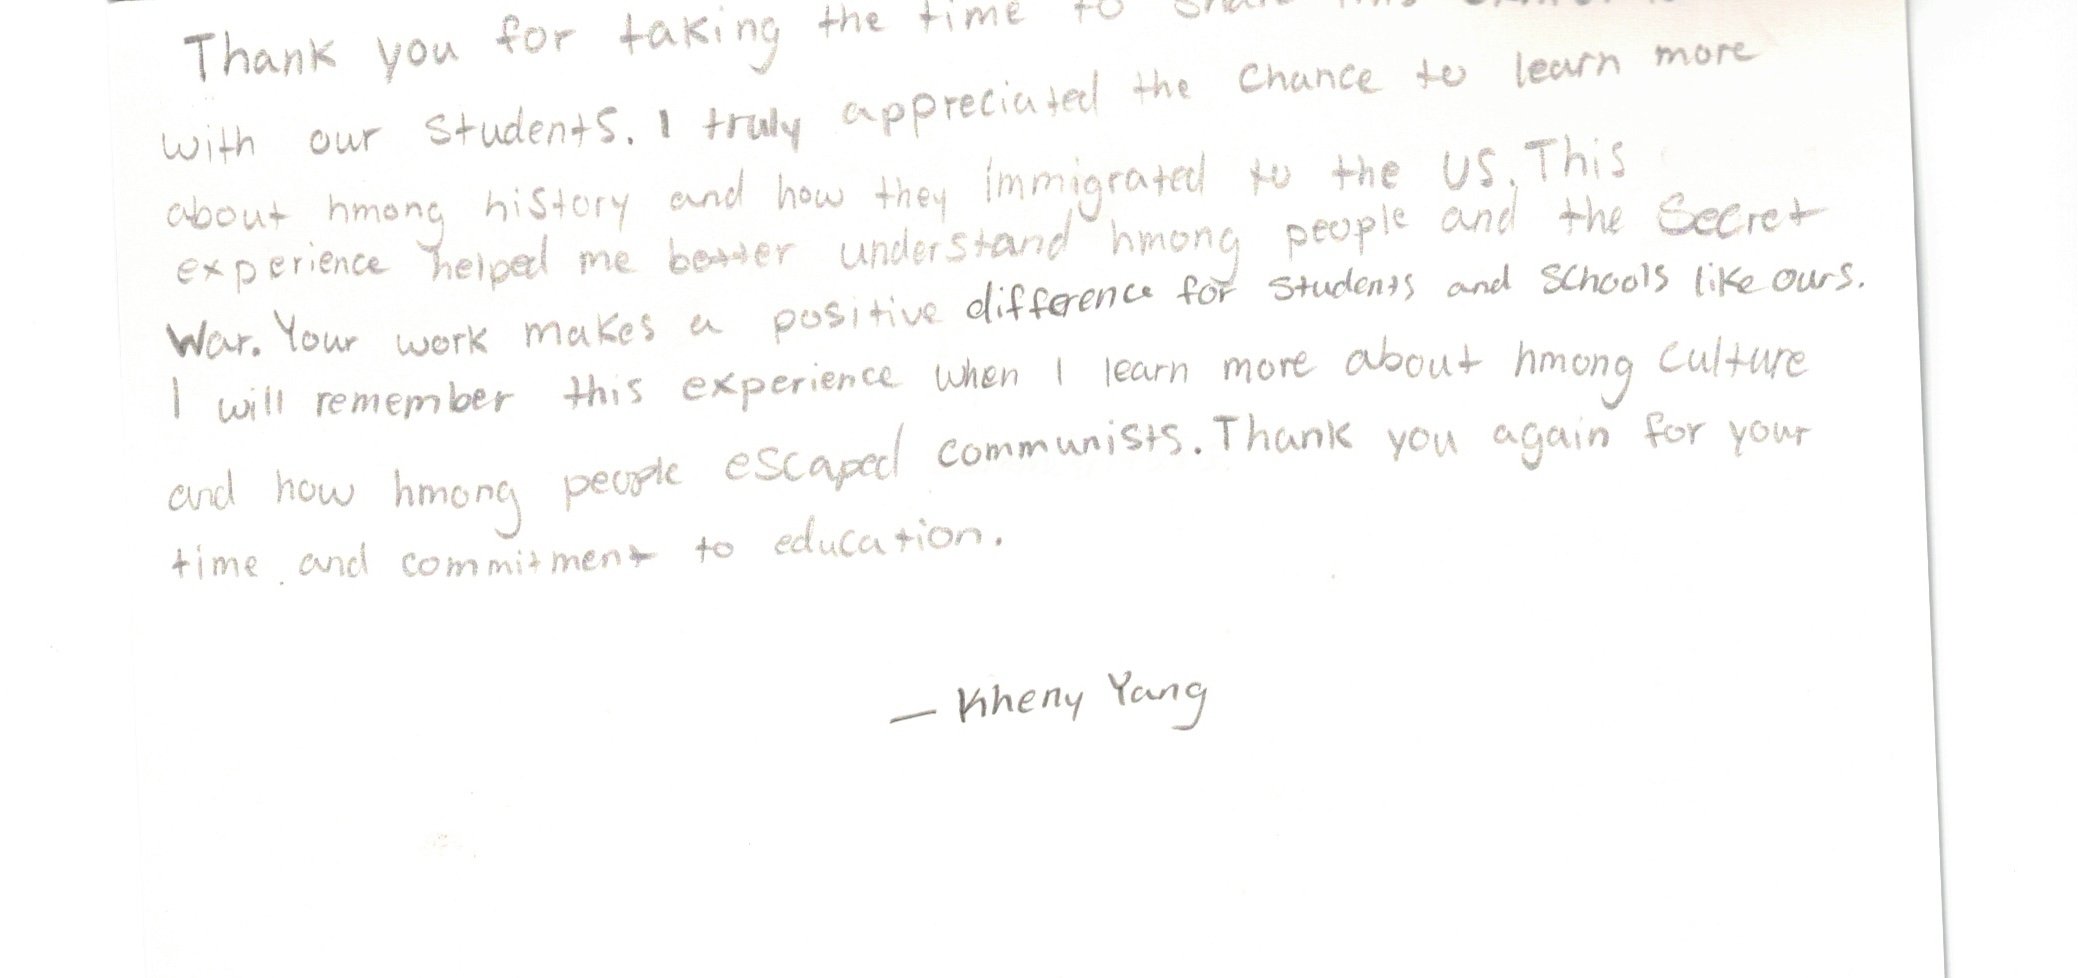 Thank you for taking the time to share this
with our students. I truly appreciated the Chance to learn more
about hmong history and how they immigrated to the US. This
experience helped me better understand hmong people and the Secret
War. Your work makes a positive difference for students and Schools like ours.
I will remember this experience when I learn more about hmong culture
and how hmong people escaped communists. Thank you again for your
time and commitment to education.
— Kheny Yang